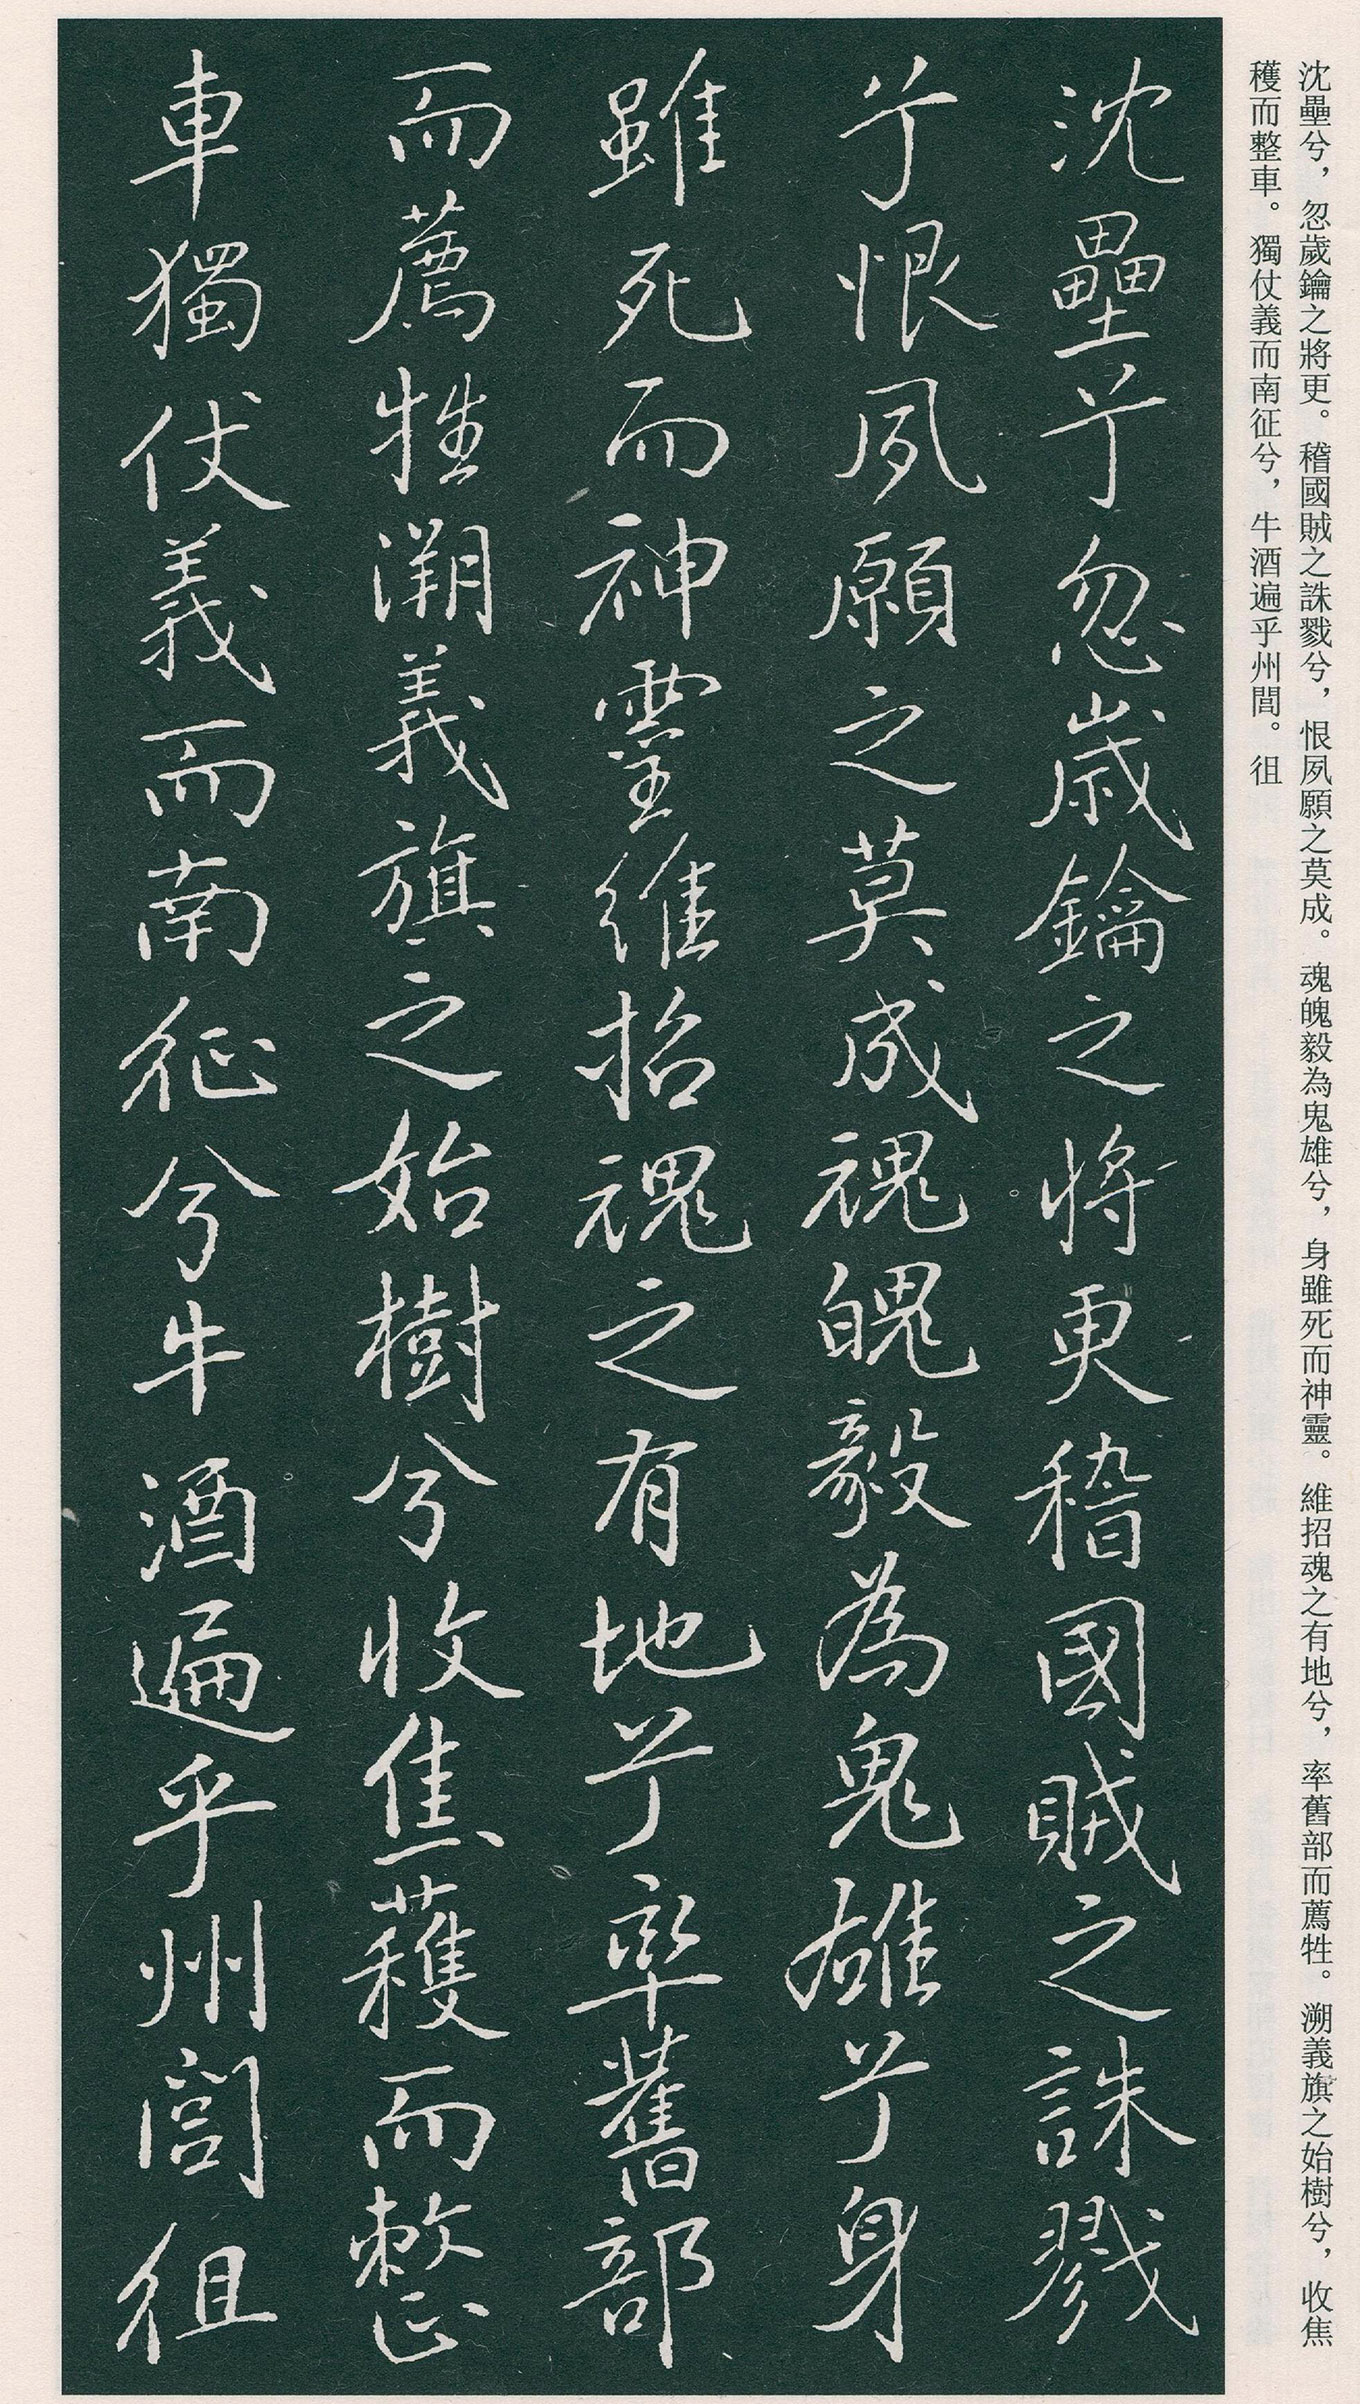 沈壘兮，忽歲鑰之將更。稽國賊之誅戮兮，恨夙願之莫成。魂魄毅為鬼雄兮，身雖死而神靈。維招魂之有地兮，率舊部而薦牲。溯義旗之始樹兮，收焦
穫而整車。獨仗義而南征兮，牛酒遍乎州閭。徂
沈壘兮忽歲鑰之將更稽國賊之誅戮
兮恨夙願之莫成魂魄毅為鬼雄兮身
雖死而神靈維招魂之有地兮率舊部
而薦牲溯義旗之始樹兮收焦穫而整
車獨仗義而南征兮牛酒遍乎州閭徂